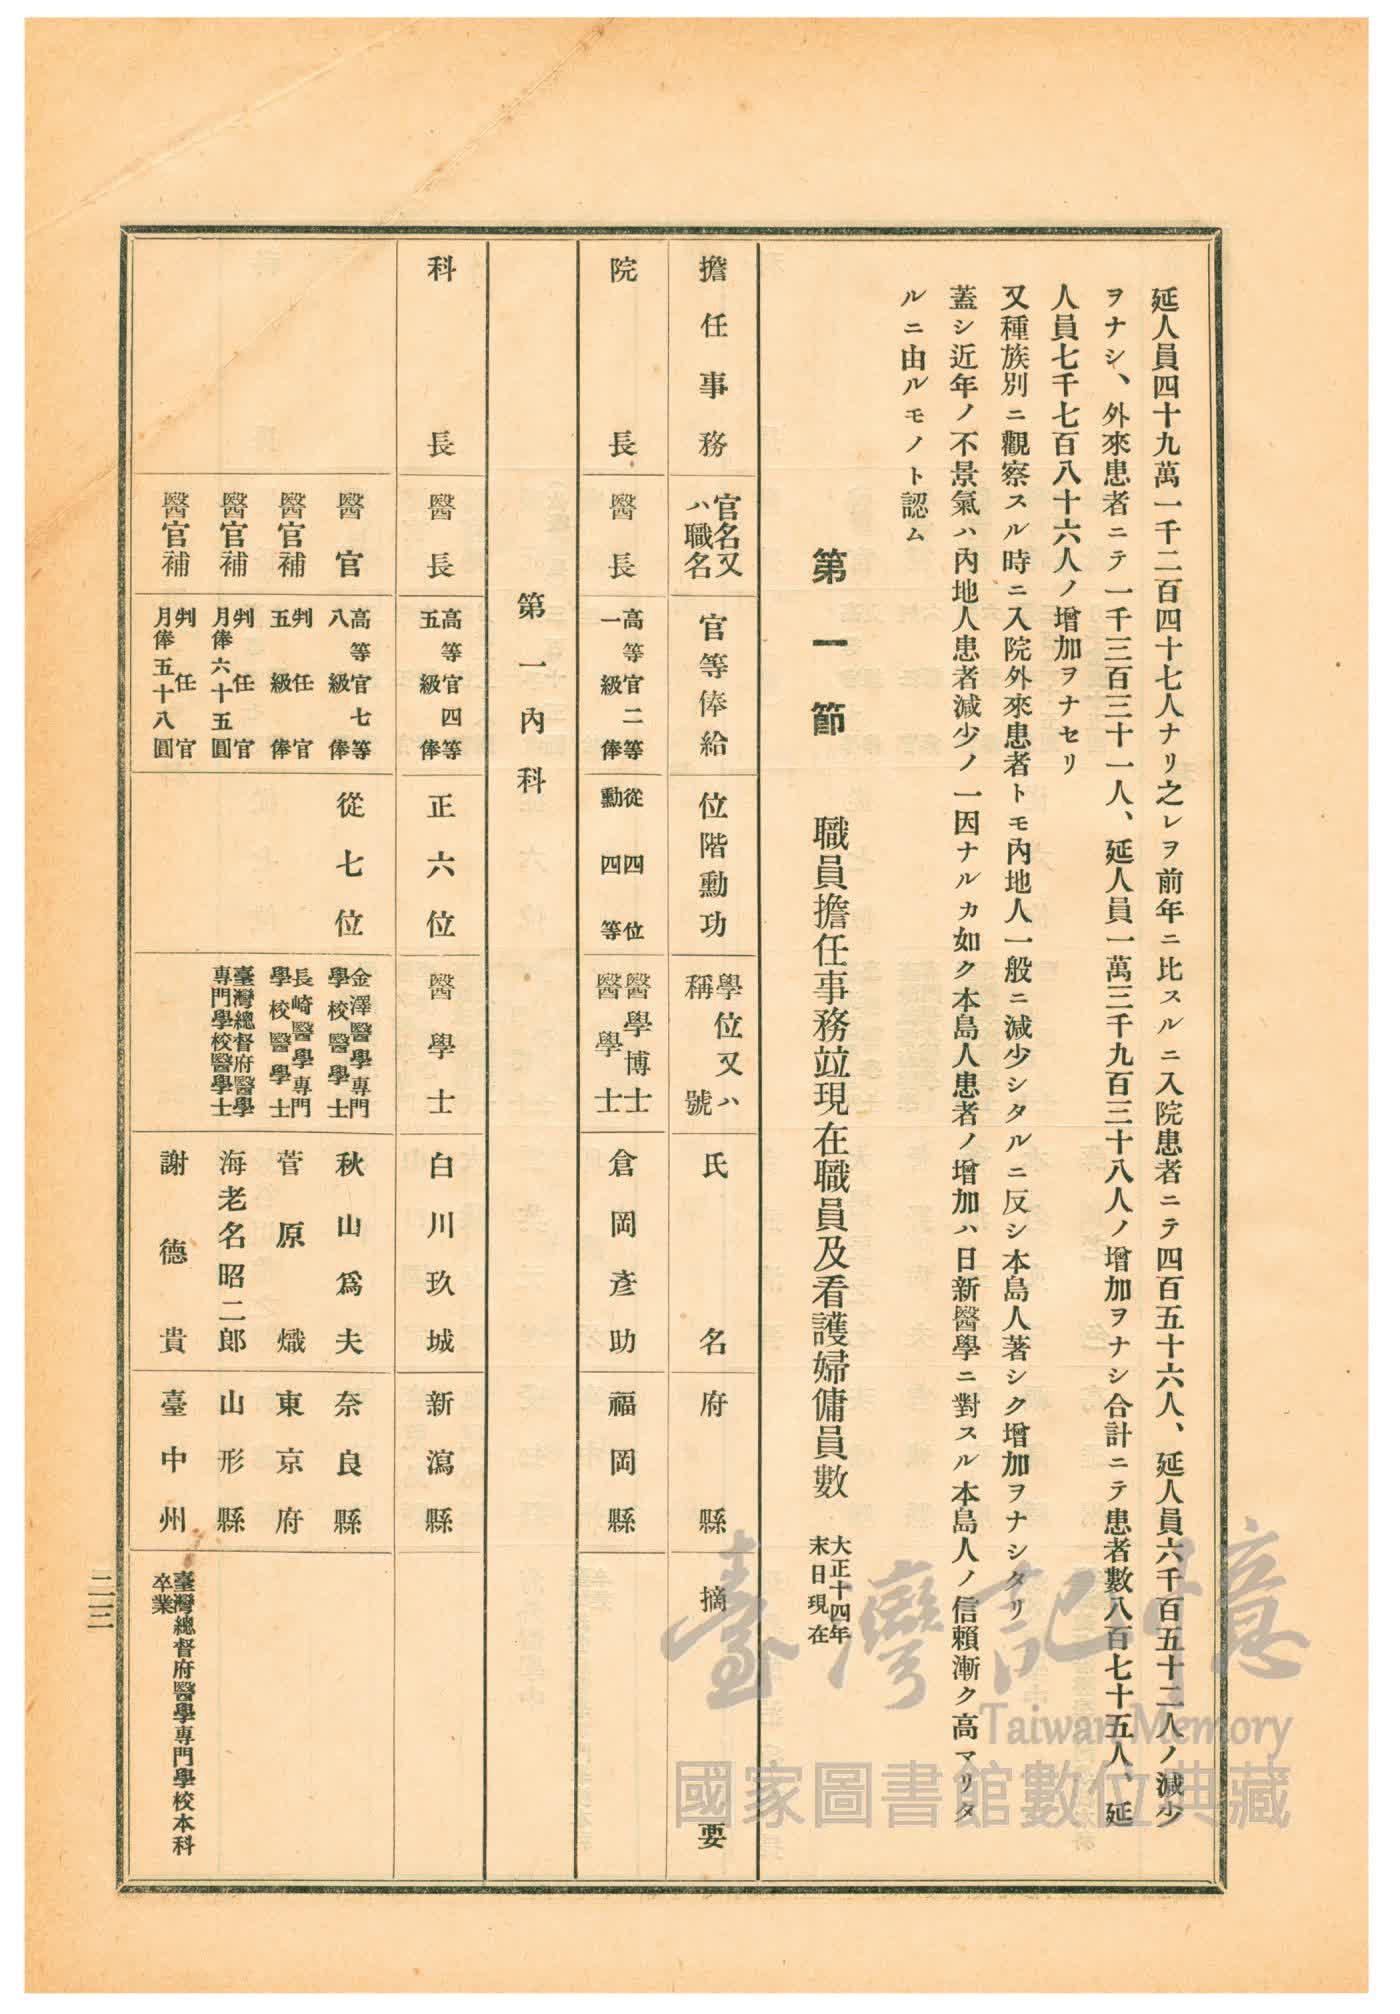 延人員四十九萬一千二百四十七人ナリ之レヲ前年ニ比スルニ入院患者ニテ四百五十六人、延人員六千百五十二人ノ減少
ヲナシ、外來患者ニテ一千三百三十一人、延人員一萬三千九百三十八人ノ增加ヲナシ合計ニテ患者數八百七十五人、延
人員七千七百八十六人ノ增加ヲナセリ
又種族別ニ觀察スル時ニ入院外來患者トモ內地人一般ニ減少シタルニ反シ本島人著シク增加ヲナシタリ
蓋シ近年ノ不景氣ハ內地人患者減少ノ一因ナルカ如ク本島人患者ノ增加ハ日新醫學ニ對スル本島人ノ信賴漸ク高マリタ
ルニ由ルモノト認ム
第一節 職員擔任事務竝現在職員及看護婦傭員數 大正十四年末日現在
擔任事務 官名又ハ職名 官等俸給 位階勳功 學位又ハ稱號 氏名 府縣 摘要
院長 醫長 高等官二等一級俸 從四位勳四等 醫學博士醫學士 倉岡彥助 福岡縣
第一內科
科長 醫長 高等官四等五級俸 正六位 醫學士 白川玖城 新瀉縣
醫官 高等官七等八級俸 從七位 金澤醫學專門學校醫學士 秋山爲夫 奈良縣
醫官補 判任官五級俸 長崎醫學專門學校醫學士 菅原熾 東京府
醫官補 判任官月俸六十五圓 臺灣總督府醫學專門學校醫學士 海老名昭二郎 山形縣
醫官補 判任官月俸五十八圓 謝德貴 臺中州 臺灣總督府醫學專門學校本科卒業
二三
臺灣記憶
Taiwan Memory
國家圖書館數位典藏